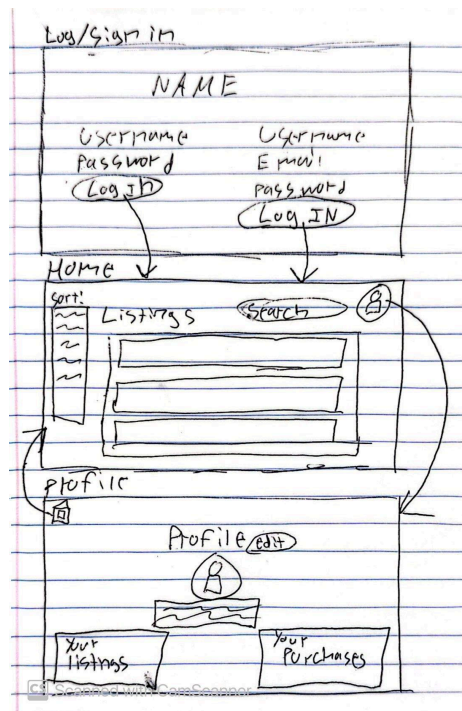 Log/Sign in
NAME
Username
Password
Log In
Username
Email
Password
Log IN
Home
Sort:
Listings
Search
Profile
Profile edit
Your
listings
Your
Purchases
CS Scanned with CamScanner